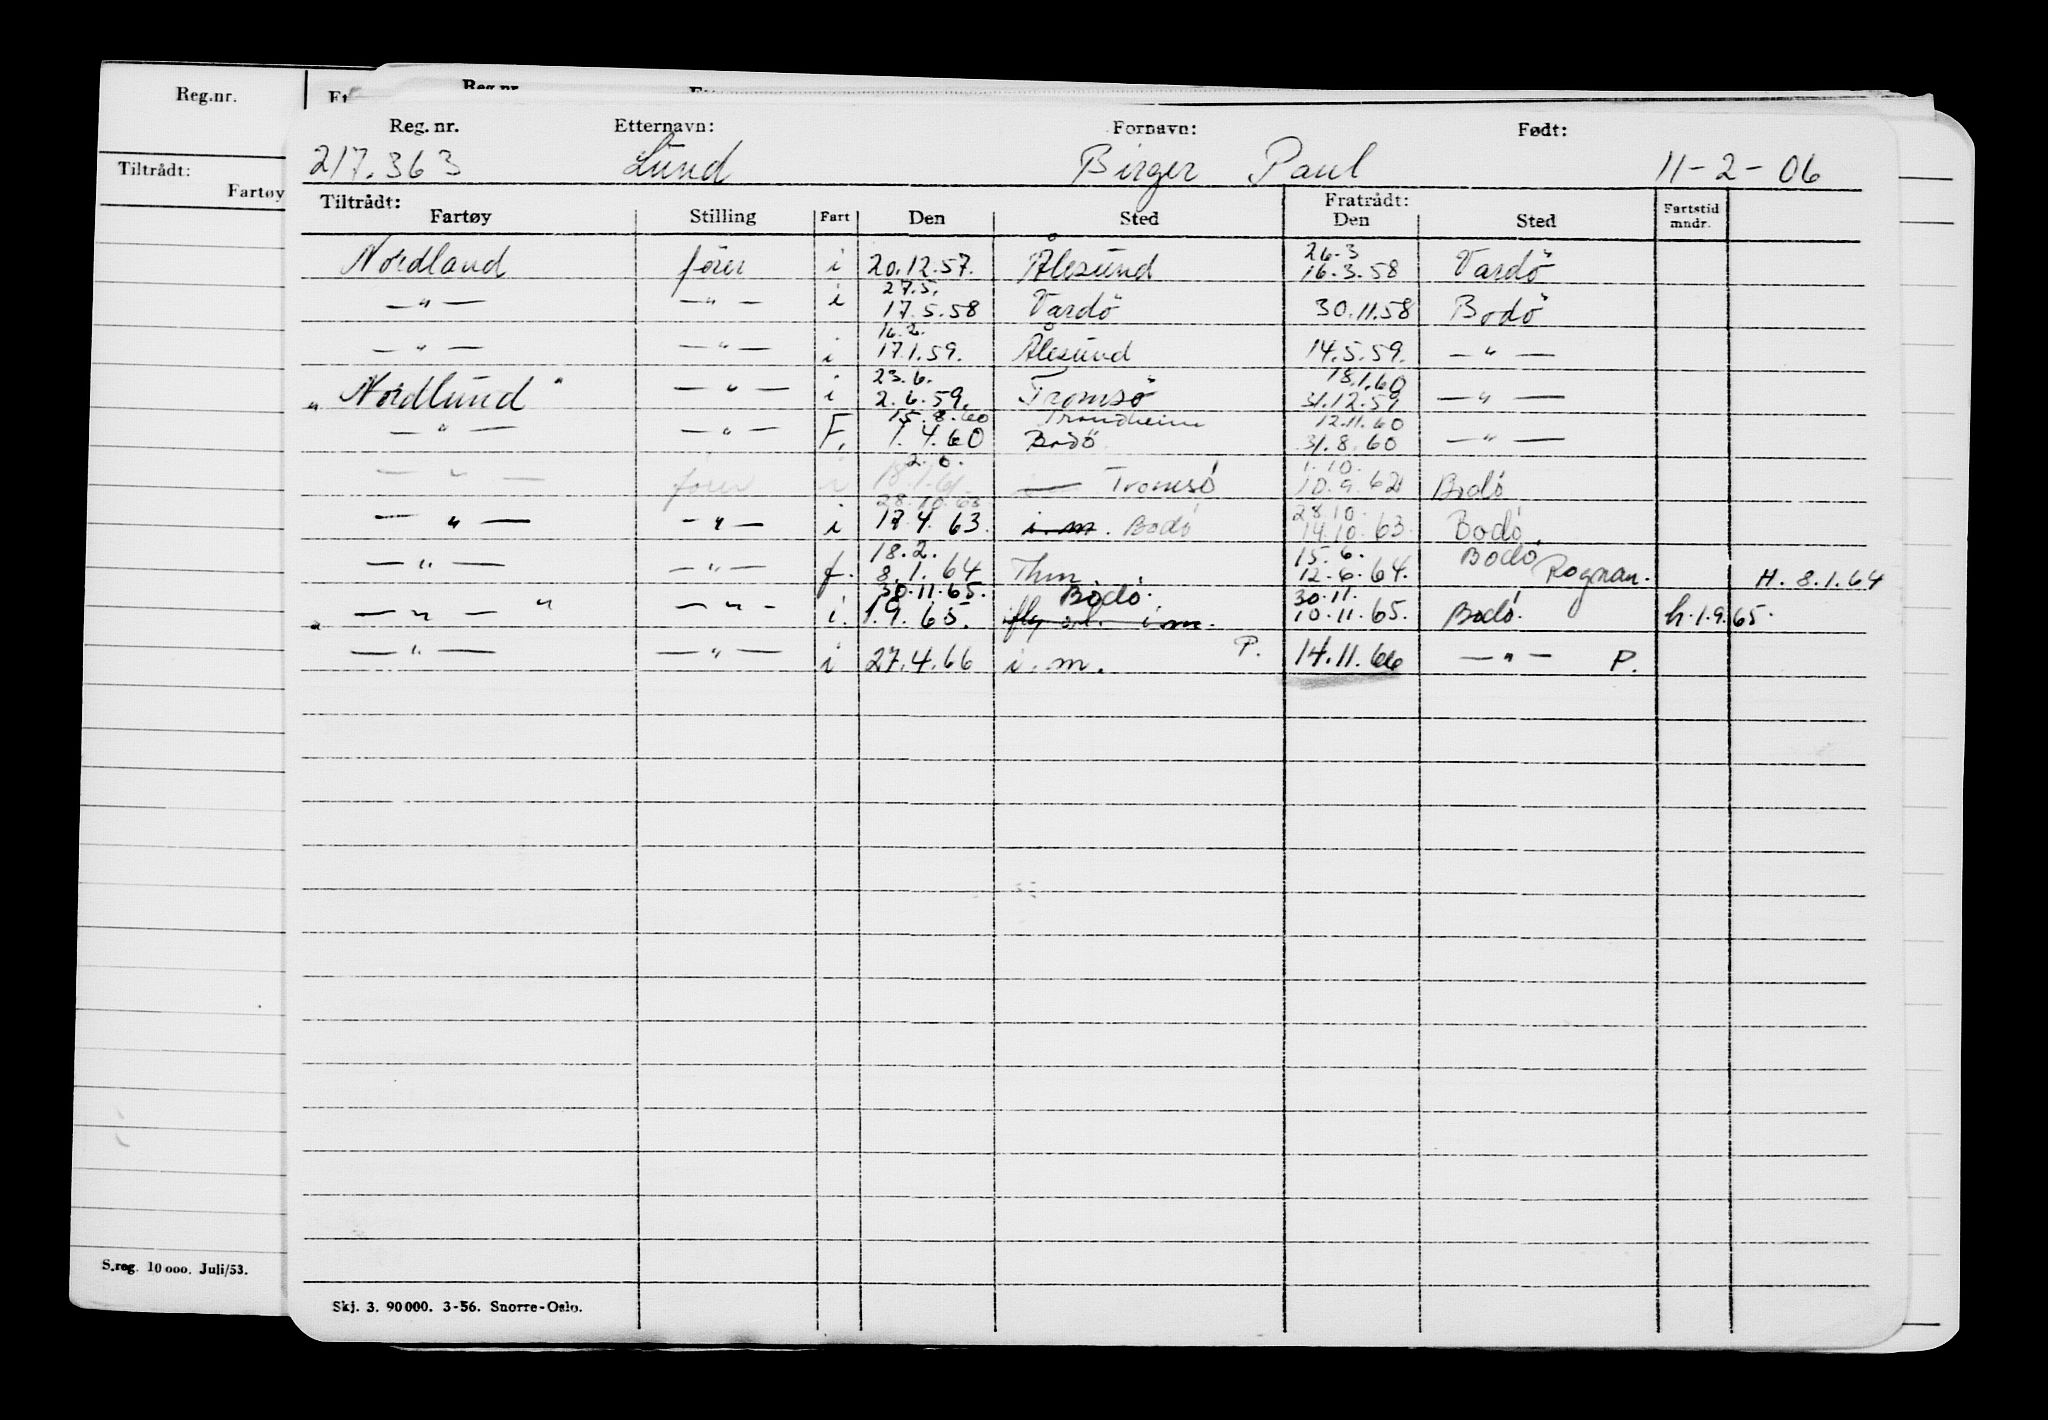 Reg.nr.
Tiltrådt:
Fartøy
S.reg. 10 000. Juli/53.
Reg.nr.
Reg. nr. Etternavn: Fornavn: Født:
217.363 Lund Birger Paul 11-2-06
Tiltrådt: Fratrådt:
Fartøy Stilling Fart Den Sted Den Sted Fartstid mndr.
26.3
Nordland fører i 20.12.57. Ålesund 16.3.58 Vardö
27.5.
—"— —"— i 17.5.58 Vardö 30.11.58 Bodö
16.2.
—"— —"— i 17.1.59. Ålesund 14.5.59. —"—
23.6. 18.1.60
"Nordlund" —"— i 2.6.59. Tromsö 31.12.59 —"—
15.8.60 Trondheim 12.11.60
—"— —"— F. 1.4.60 Bodö 31.8.60 —"—
2.6. 1.10.
—"— fører i 18.1.61 — Tromsø 10.9.62 Bodö
28.10.63 28.10.
—"— —"— i 17.4.63. i.m. Bodö 14.10.63. Bodö.
18.2. 15.6. Bodø
—"— —"— f. 8.1.64 Thm. 12.6.64. Rognan. H. 8.1.64
30.11.65. Bodö. 30.11.
"—"—" —"— i. 1.9.65. i.m. 10.11.65. Bodö. h.1.9.65.
—"— —"— i 27.4.66 i.m. P. 14.11.66 —"— P.
Skj. 3. 90 000. 3-56. Snorre-Oslo.